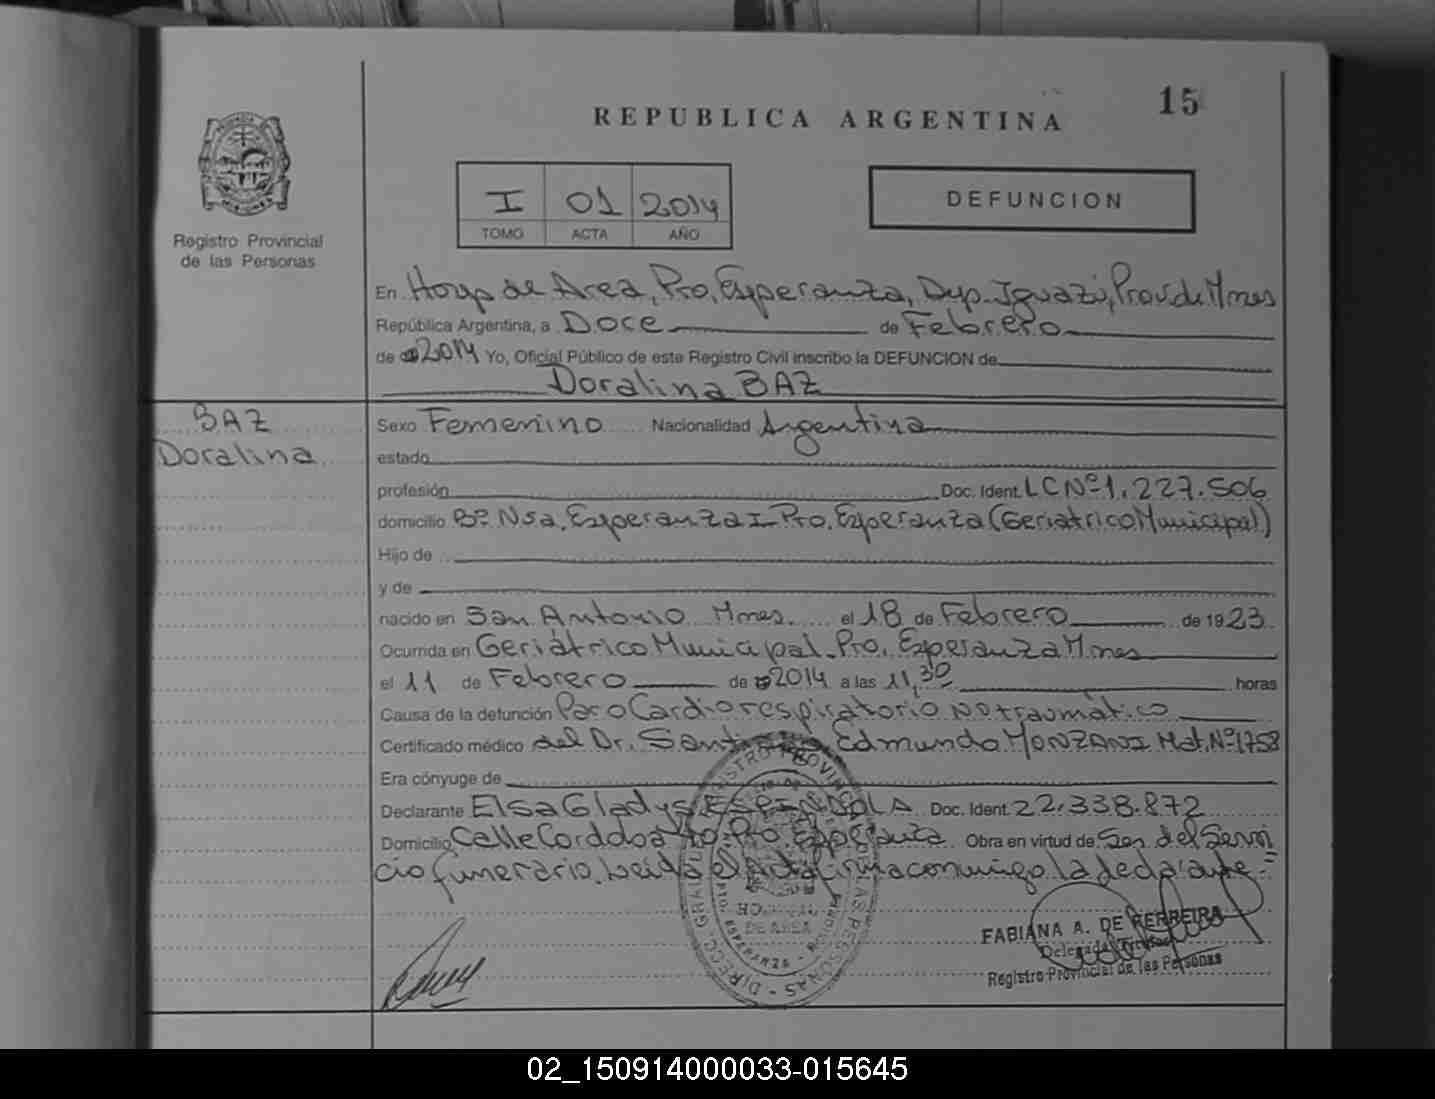 15
REPUBLICA ARGENTINA
I 01 2014
TOMO ACTA AÑO
DEFUNCION
Registro Provincial
de las Personas
En Hosp de Area, Pto, Esperanza, Dep. Iguazú, Prov. de Mnes
República Argentina, a Doce de Febrero
de 2014 Yo, Oficial Público de este Registro Civil inscribo la DEFUNCION de
Doralina BAZ
BAZ
Doralina
Sexo Femenino Nacionalidad Argentina
estado
profesión Doc. Ident. LC Nº 1.227.506
domicilio Bº Nsa, Esperanza I Pto, Esperanza (Geriatrico Municipal)
Hijo de
y de
nacido en San Antonio Mnes. el 18 de Febrero de 1923
Ocurrida en Geriátrico Municipal Pto, Esperanza Mnes
el 11 de Febrero de 2014 a las 11,30 horas
Causa de la defunción Paro Cardiorespiratorio no traumático
Certificado médico del Dr. Santiago Edmundo MONZANI Mat. Nº 1758
Era cónyuge de
Declarante Elsa Gladys ESPINDOLA Doc. Ident. 22.338.872
Domicilio Calle Cordoba Pto, Esperanza Obra en virtud de Ser del Servi
cio funerario. Leida el Acta firma conmigo la declarante
HOSPITAL
DE AREA
PTO. ESPERANZA - MISIONES
FABIANA A. DE FERREIRA
Delegada
Registro Provincial de las Personas
02_150914000033-015645